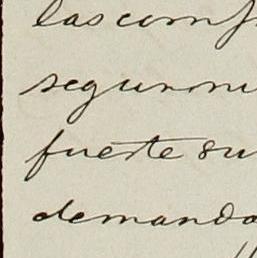 las comf
segun mi
fuerte su
demanda